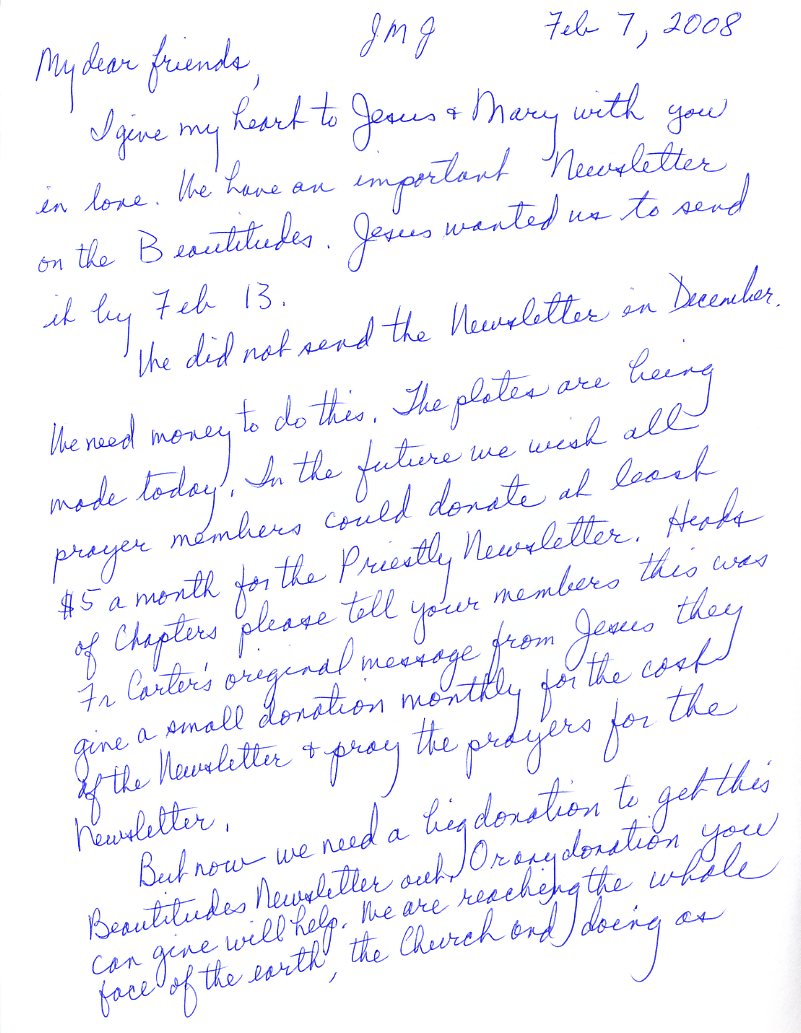 JMJ Feb 7, 2008
My dear friends,
I give my heart to Jesus + Mary with you
in love. We have an important Newsletter
on the Beautitudes. Jesus wanted us to send
it by Feb 13.
We did not send the Newsletter in December.
We need money to do this. The plates are being
made today. In the future we wish all
prayer members could donate at least
$5 a month for the Priestly Newsletter. Heads
of Chapters please tell your members this was
Fr Carter's original message from Jesus they
give a small donation monthly for the cost
of the Newsletter + pray the prayers for the
Newsletter.
But now we need a big donation to get this
Beautitudes Newsletter out. Or any donation you
can give will help. We are reaching the whole
face of the earth, the Church and doing as